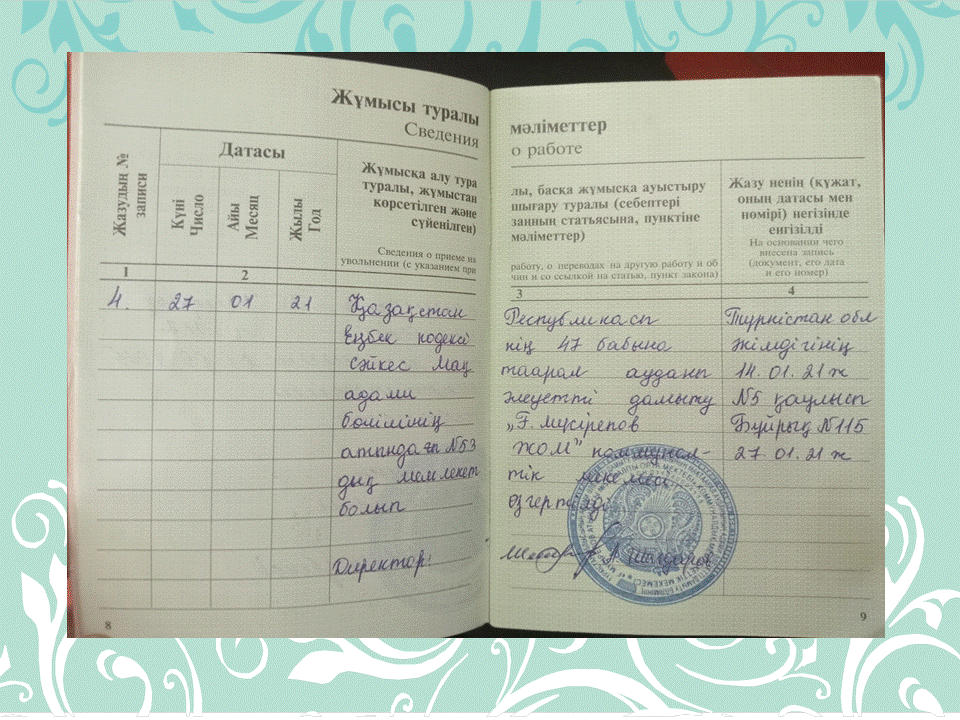 Жұмысы туралы
Сведения
Жазудың №
записи
Датасы
Күні
Число
Айы
Месяц
Жылы
Год
Жұмысқа алу тура
туралы, жұмыстан
көрсетілген және
сүйенілген)
Сведения о приеме на
увольнении (с указанием при
1
2
4.
27
01
21
Қазақстан
Еңбек кодексі
сәйкес Мақ
адами
бөлімінің
атындағы №53
дық мемлекет
болып
Директор:
8
мәліметтер
о работе
лы, басқа жұмысқа ауыстыру
шығару туралы (себептері
заңның статьясына, пунктіне
мәліметтер)
работу, о переводах на другую работу и об
чин и со ссылкой на статью, пункт закона)
Жазу ненің (құжат,
оның датасы мен
нөмірі) негізінде
енгізілді
На основании чего
внесена запись
(документ, его дата
и его номер)
3
4
Республикасы
нің 47 бабына
таарал ауданы
әлеуетті дамыту
„Ғ. Мүсірепов
ЖОМ" коммунал-
тік мекемесі
өзгертілді
Түркістан обл
әкімдігінің
14. 01. 21 ж
№5 қаулысы
Бұйрық №115
27. 01. 21 ж
9